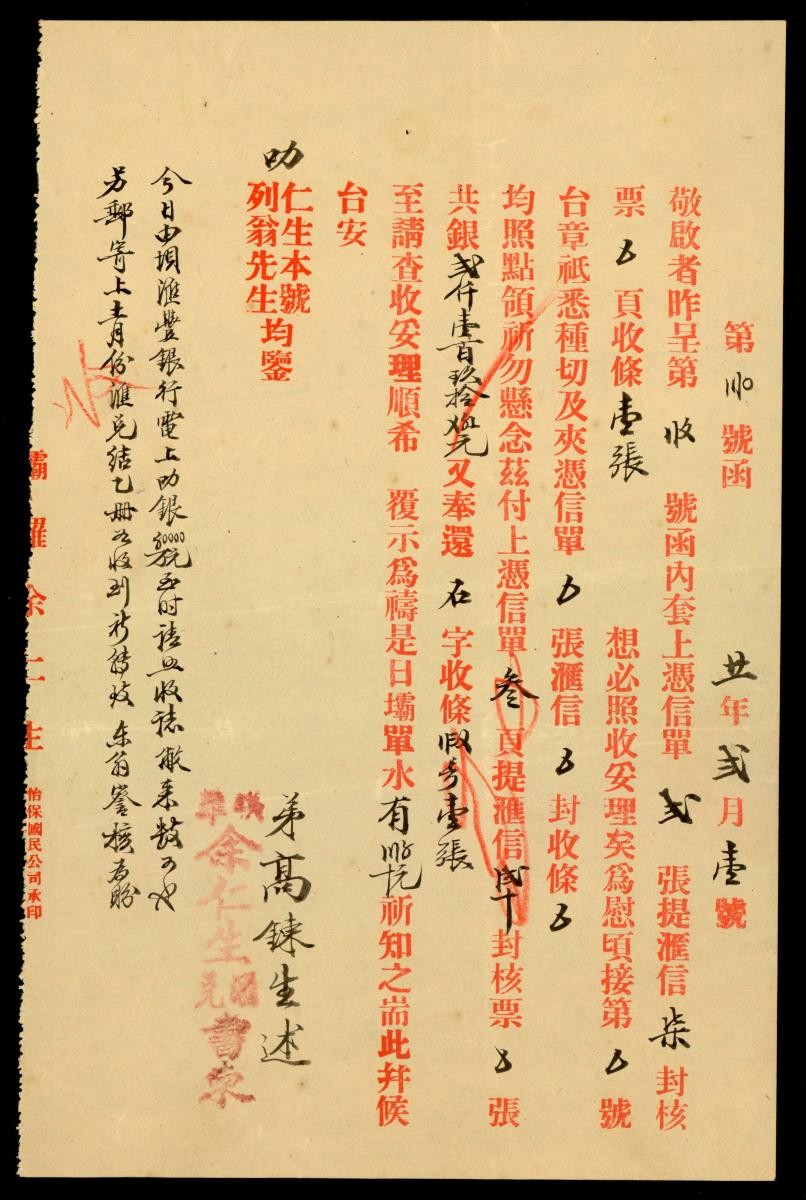 第〣〇號函
廿年弍月壹號
敬啟者昨呈第 號函內套上憑信單弍張提滙信柒封核
票 頁收條壹張 想必照收妥理矣為慰頃接第 號
台章祇悉種切及夾憑信單 張滙信 封收條
均照點領祈勿懸念茲付上憑信單叁頁提滙信 封核票 張
共銀弍仟壹百玖拾 元又奉還石字收條 壹張
至請查收妥理順希 覆示為禱是日壩單水有 祈知之耑此并候
台安
叻仁生本號
列翁先生均鑒
今日由壩滙豐銀行電上叻銀 到時請 收 來數可也
另郵寄上 月份滙兌結 冊 收到祈轉 東翁 核為盼
弟高鍊生述
余仁生
滙兌
書柬
壩羅余仁生
怡保國民公司承印